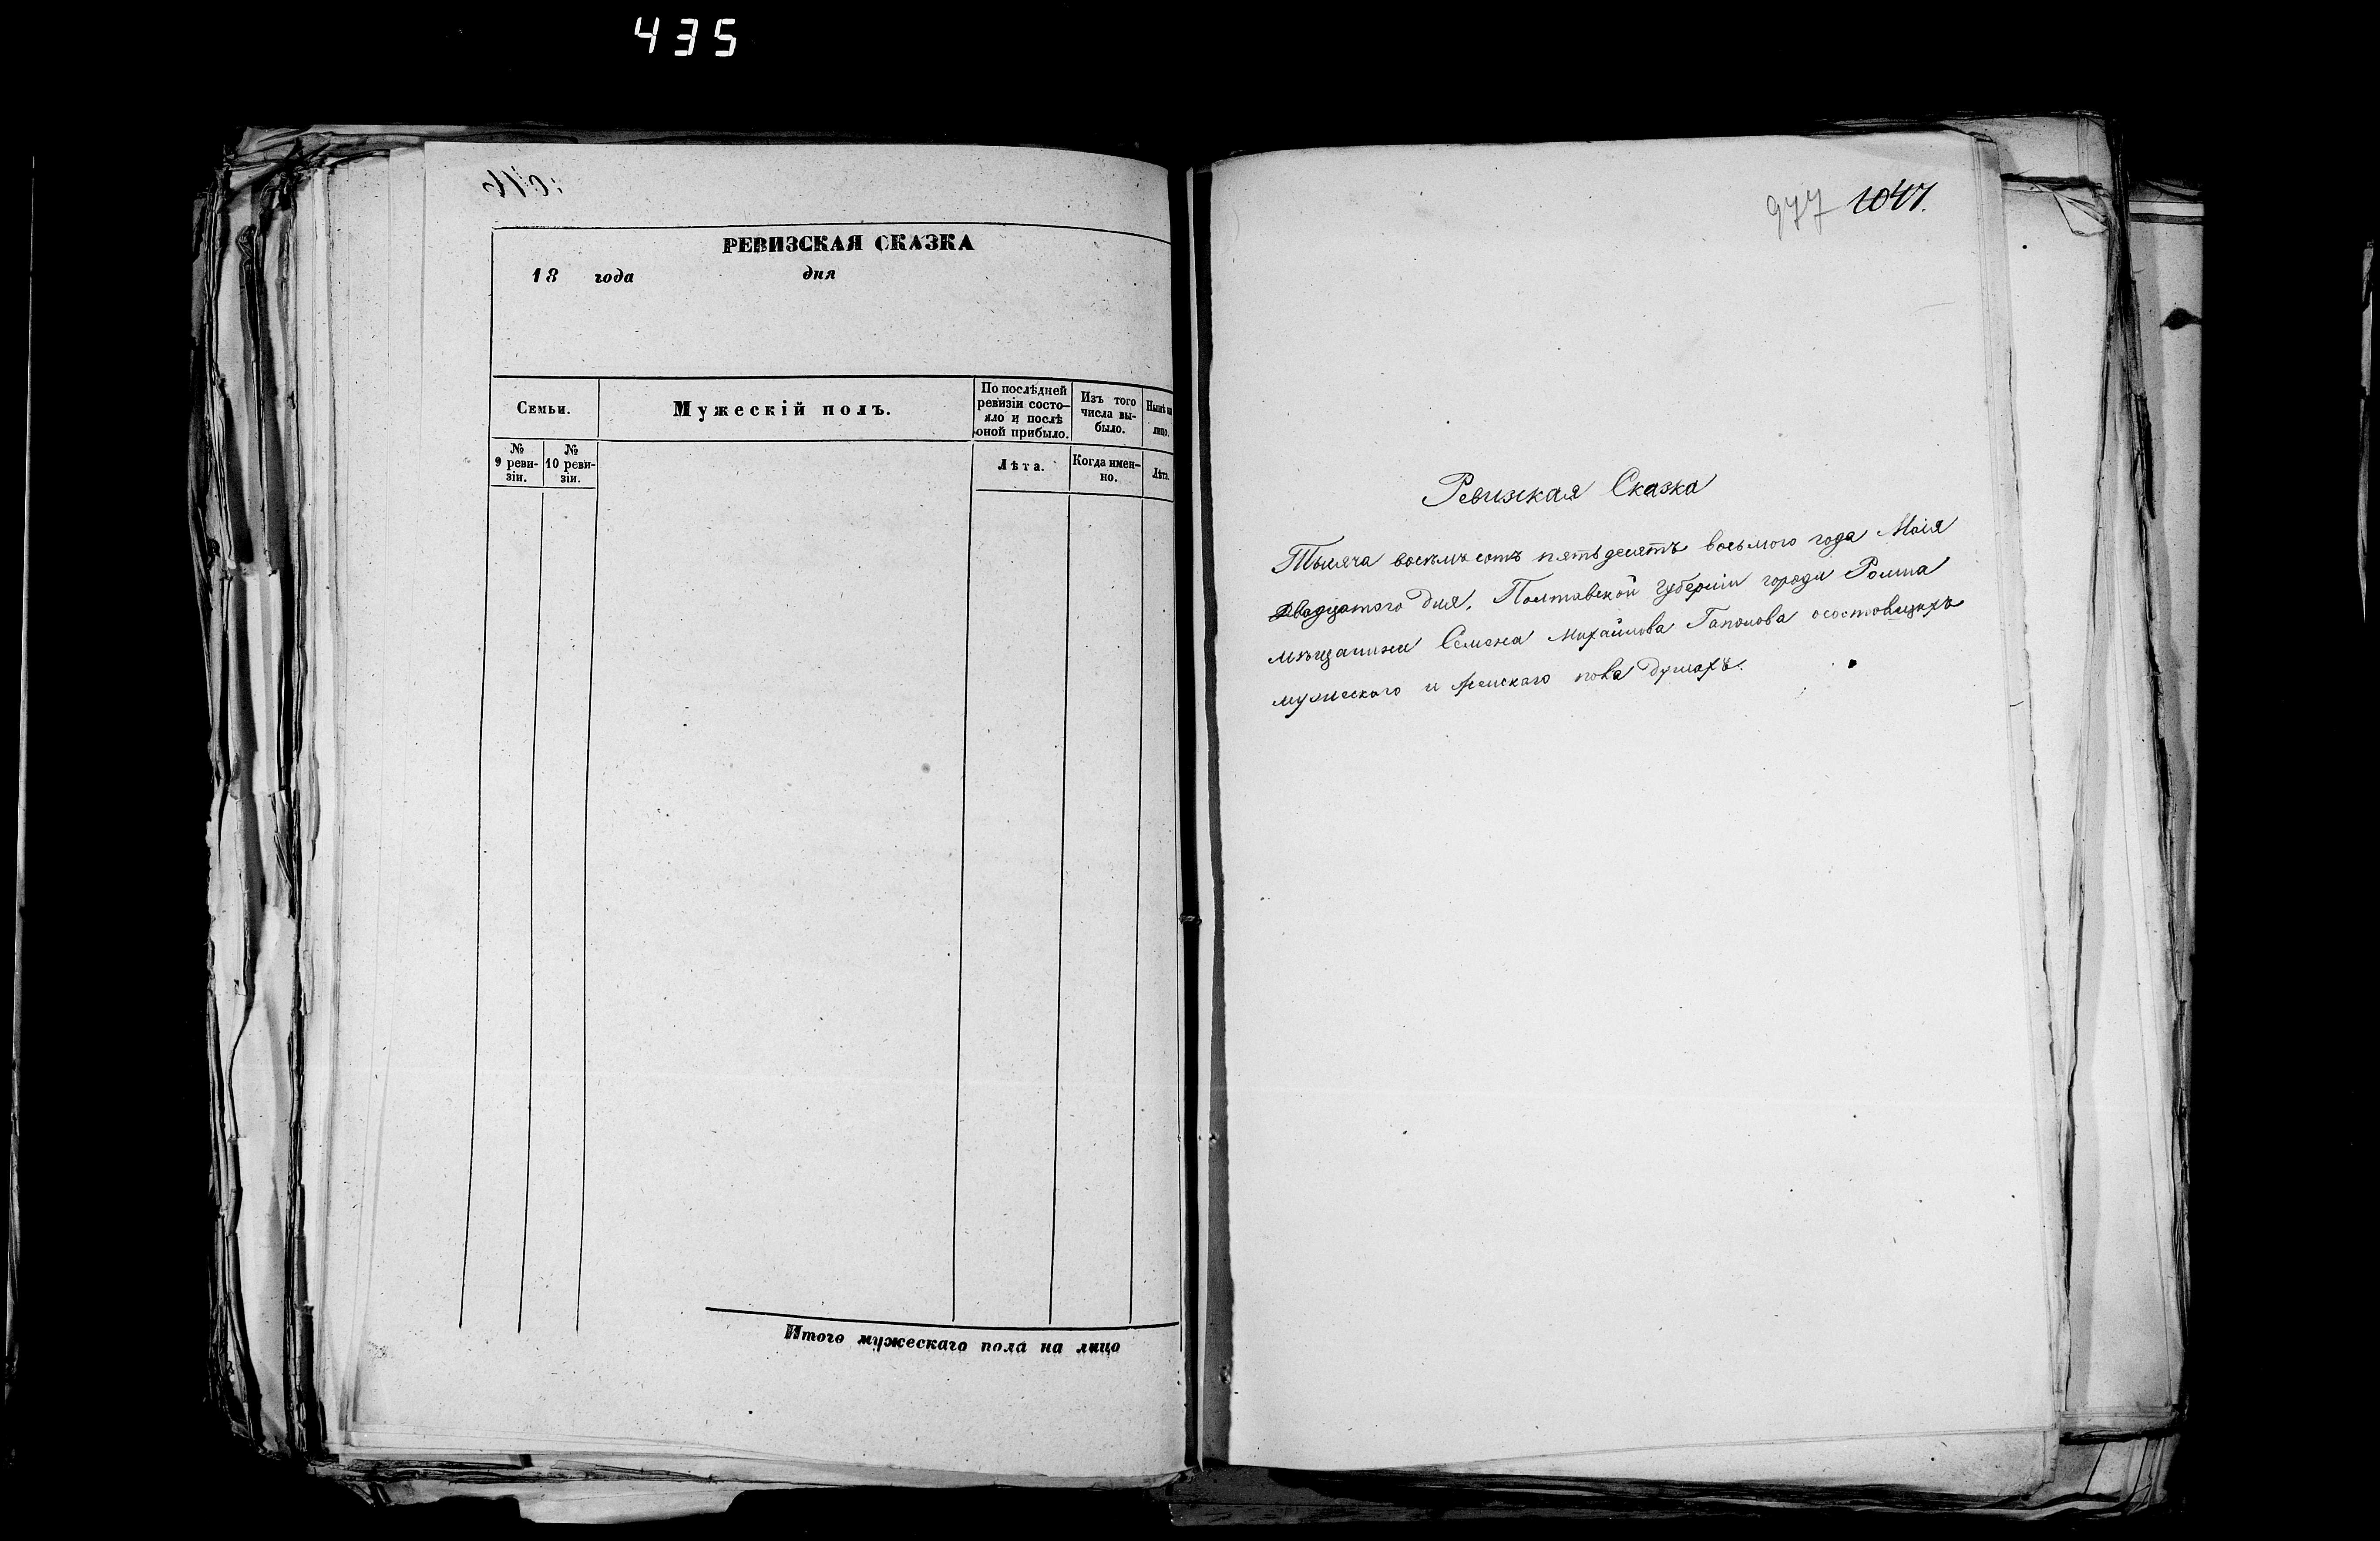 435
РЕВИЗСКАЯ СКАЗКА
18 года дня
Семьи.
Мужескій полъ.
По послѣдней ревизіи состо-
яло и послѣ
оной прибыло.
Изъ того
числа вы-
было.
Нынѣ на
лицо.
№
9 реви-
зіи.
№
10 реви-
зіи.
Лѣта.
Когда имен-
но.
Лѣта.
Итого мужескаго пола на лицо
977 1047.
Ревизкая Сказка
Тысяча восемъ сотъ пятьдесятъ восьмого года Маія
двадцатого дня, Полтавской Губерніи города Ромна
мѣщанина Семена Михайлова Гапонова о состовщихъ
мужескаго и женскаго пола душахъ.